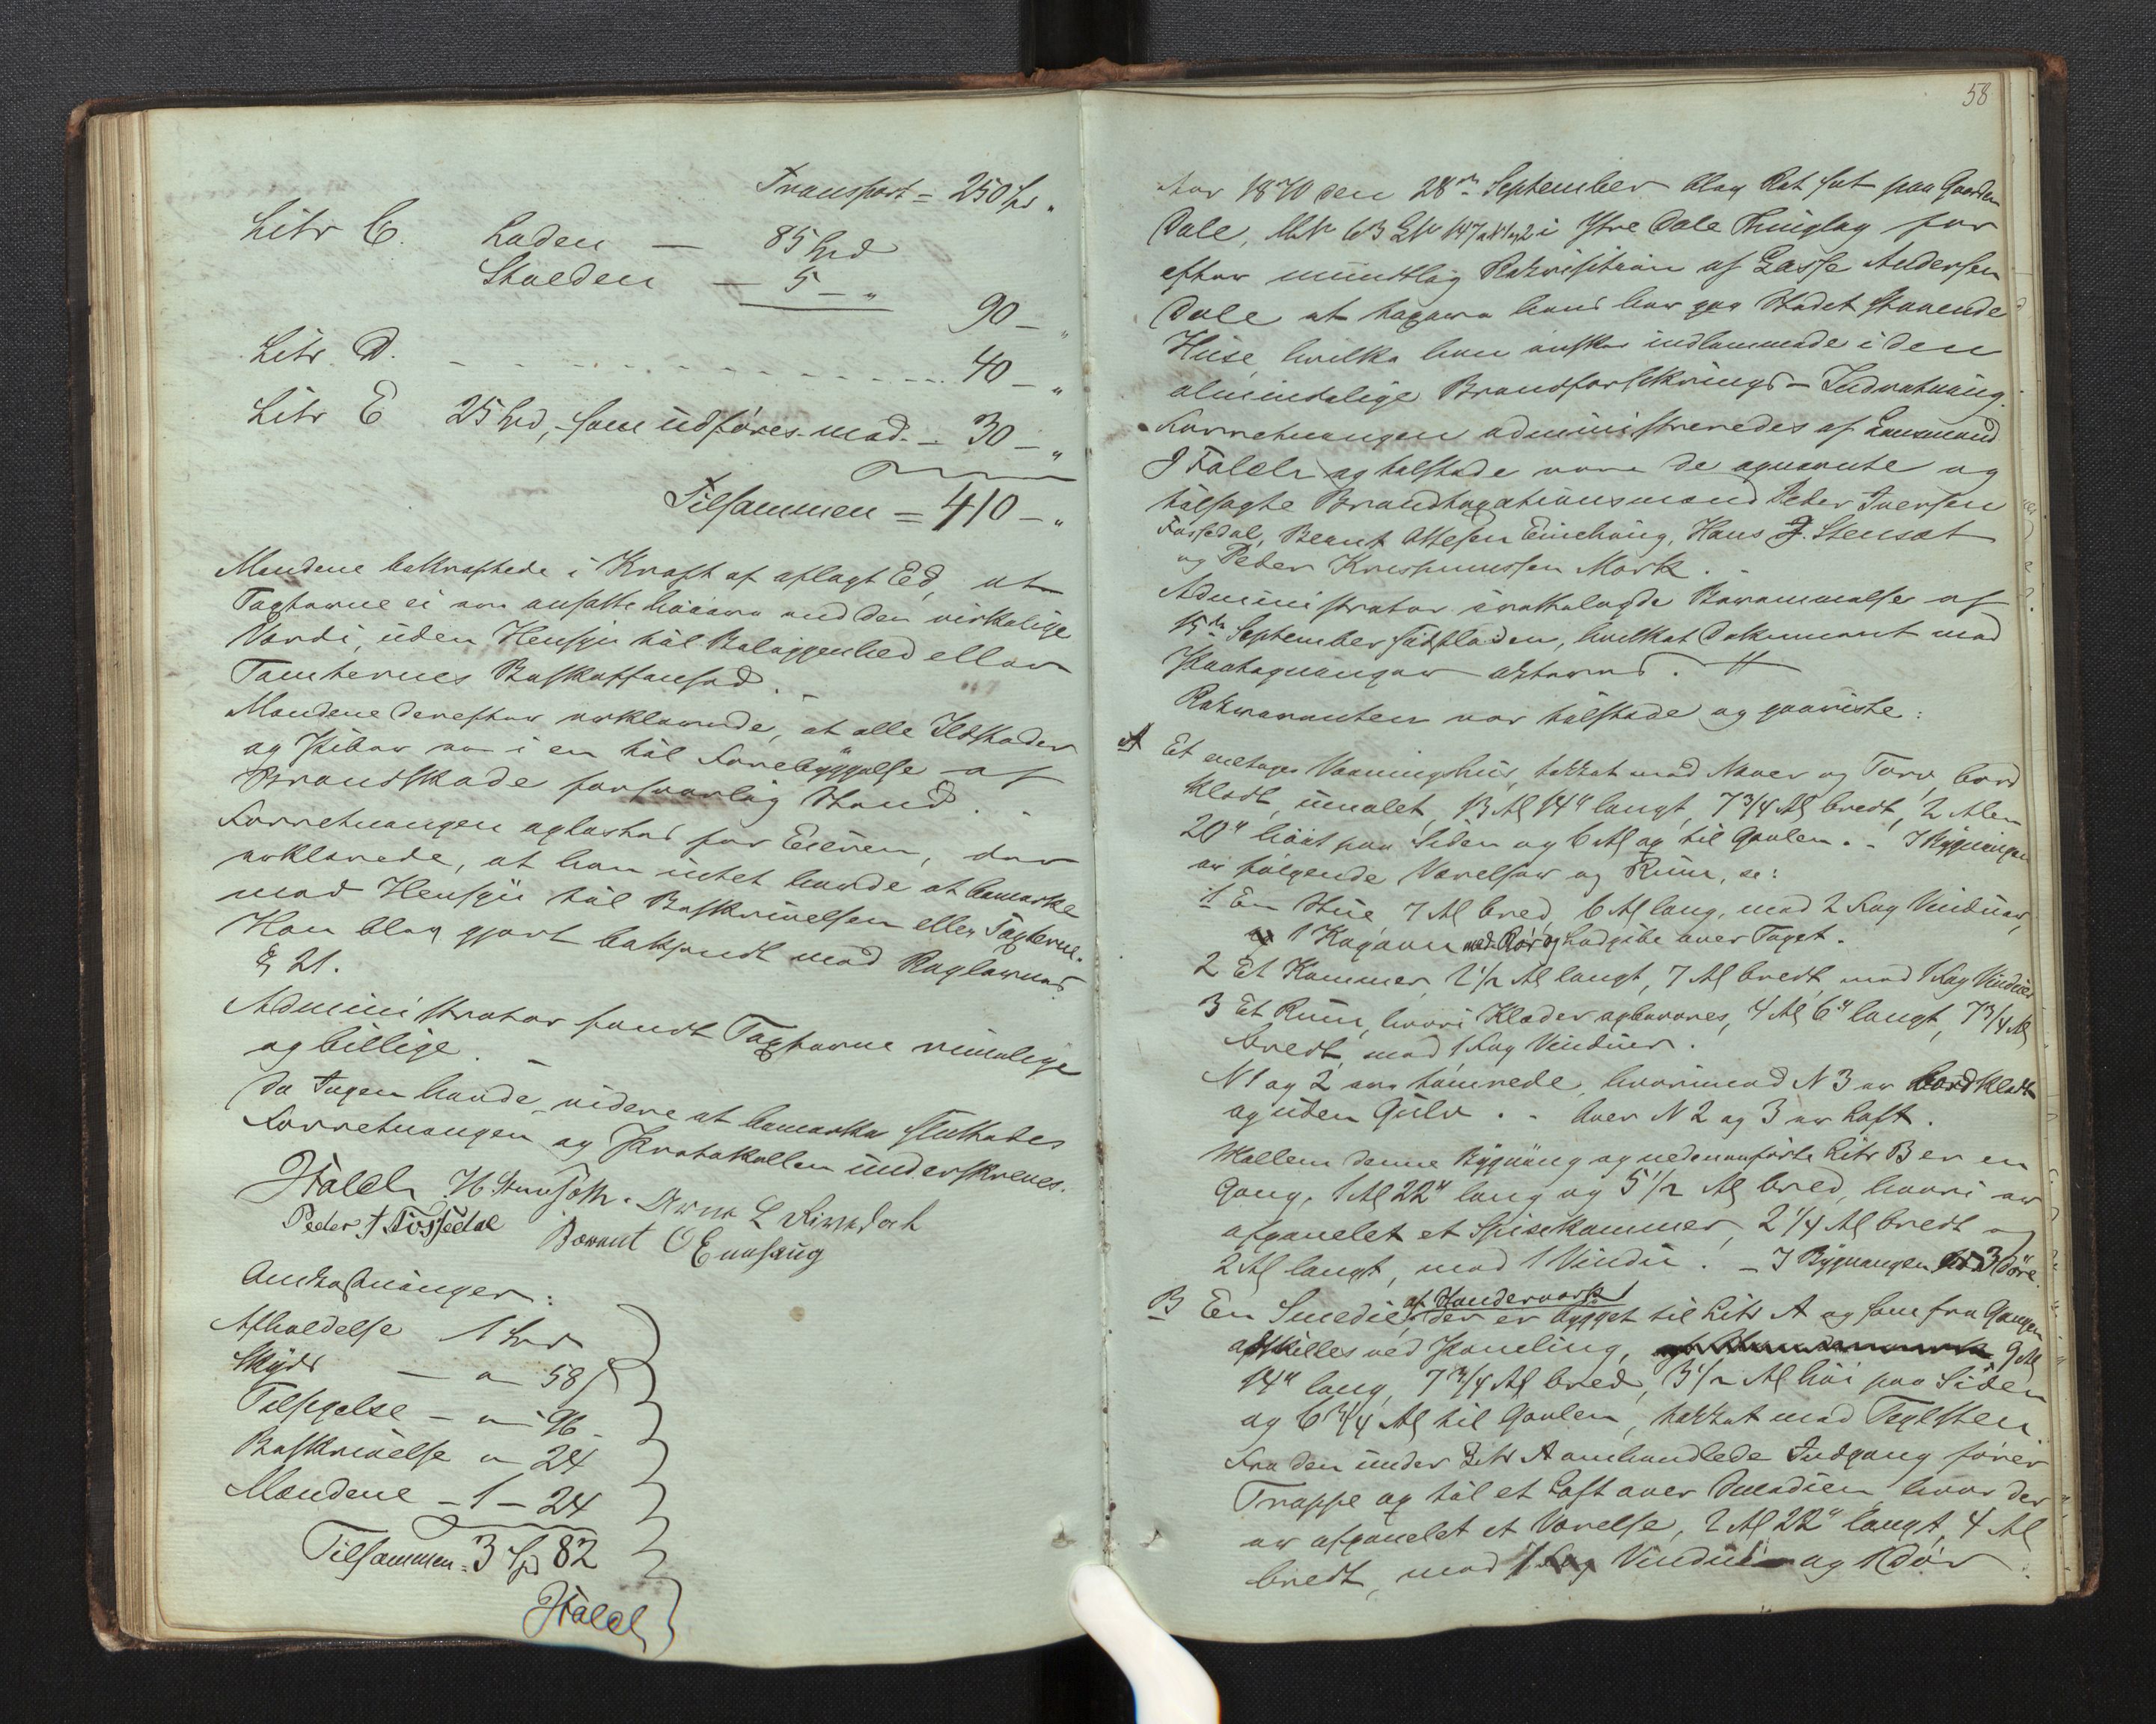 Transport = 250 Spd "
Litr C. Laden — 85 Spd
Skolden — 5 — "
90 — "
Litr. D. 40 — "
Litr E 25 Spd, som udføres med — 30 — "
Tilsammen = 410 — "
Mændene bekræftede i Kraft af aflagt Ed, at
Taxterne ei ere ansatte høiere end den virkelige
Værdi, uden Hensyn til Beliggenhed eller
Tomternes Beskaffenhed. —
Mændene derefter erklærede, at alle Ildsteder
og Piber ere i en til Forebyggelse af
Brandskade forsvarlig Stand. —
Forretningen oplæstes for Eieren, der
erklærede, at han intet havde at bemærke
med Hensyn til Beskrivelsen eller Taxterne.
Han blev gjort bekjendt med Reglernes
§ 21.
Administrator fandt Taxterne rimelige
og billige. —
Da Ingen havde videre at bemærke sluttedes
Forretningen og Protokollen underskreves.
JFalch H. Stensæth.
Peder I Fossedal Bernt O Einehaug
Omkostninger:
Afholdelse 1 Spd
Skyds — " — 58 ß
Tilsigelse — " — 96 —
Beskrivelse " — 24
Mændene — 1 — 24
Tilsammen = 3 Spd 82
JFalch
58
Aar 1870 den 28de September blev Ret sat paa Gaarden
Dale, MNr 63 LNr 147 i Ytre Dale Thinglag for
efter mundtlig Rekvisition af Lasse Andersen
Dale at taxere hans her paa Stedet staaende
Huse, hvilke han ønsker indlemmede i den
almindelige Brandforsikrings-Indretning.
Forretningen administreredes af Lensmand
J Falch og tilstede vare de opnævnte og
tilsagte Brandtaxationsmænd Peder Iversen
Fossedal, Bernt Olsen Einehaug, Hans J. Stensæt
og Peder Rasmussen Mork. —
Administrator fremlagde Berammelse af
15de September sidstleden, hvilket Dokument med
Paategninger akteres.
Rekvirenten var tilstede og paaviste:
A Et eenetages Vaaningshus, tækket med Næver og Torv, bord
klædt, umalet, 13 Al 14" langt, 7 3/4 Al bredt, 2 Alen
20" høit paa Siden og 6 Al op til Gavlen. — I Bygningen
er følgende Værelser og Rum, se:
1 En Stue 7 Al bred, 6 Al lang, med 2 Fag Vinduer,
1 Kogeovn med Rør og Ladpibe over Taget.
2 Et Kammer, 2 1/2 Al langt, 7 Al bredt, med 1 Fag Vinduer
3 Et Rum, hvori Klæder opbevares, 4 Al 6" langt, 7 3/4 Al
bredt, med 1 Fag Vinduer.
N 1 og 2 ere tømrede, hvorimod N 3 er bordklædt
og uden Gulv. — Over N 2 og 3 er Loft.
Mellem denne Bygning og nedenanførte Litr B er en
Gang, 1 Al 22" lang og 5 1/2 Al bred, hvori er
afpanelet et Spisekammer, 2 1/4 Al bredt og
2 Al langt, med 1 Vindu. — I Bygningen er 3 Døre.
B En Smedie, af Bindeverk, der er bygget til Litr A og som fra Gangen
adskilles ved Paneling, 9 Al
14" lang, 7 3/4 Al bred, 3 1/2 Al høi paa Siden
og 6 3/4 Al til Gavlen, tækket med Teglsten.
Fra den under Litr A omhandlede Indgang fører
Trappe op til et Loft over Smedien, hvor der
er afpanelet et Værelse, 2 Al 22" langt, 4 Al
bredt, med 1 Fag Vinduer og 1 Dør.